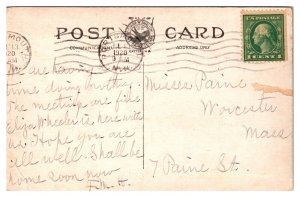 POST CARD
COMMUNICATION
ADDRESS ONLY
1920
U.S. POSTAGE
1 CENT 1
We are having
time doing
The meetings are fine
Eliza Wheeler is here with
us. Hope you are
all well. Shall be
home soon now
Misses Paine
Worcester
Mass
7 Paine St.